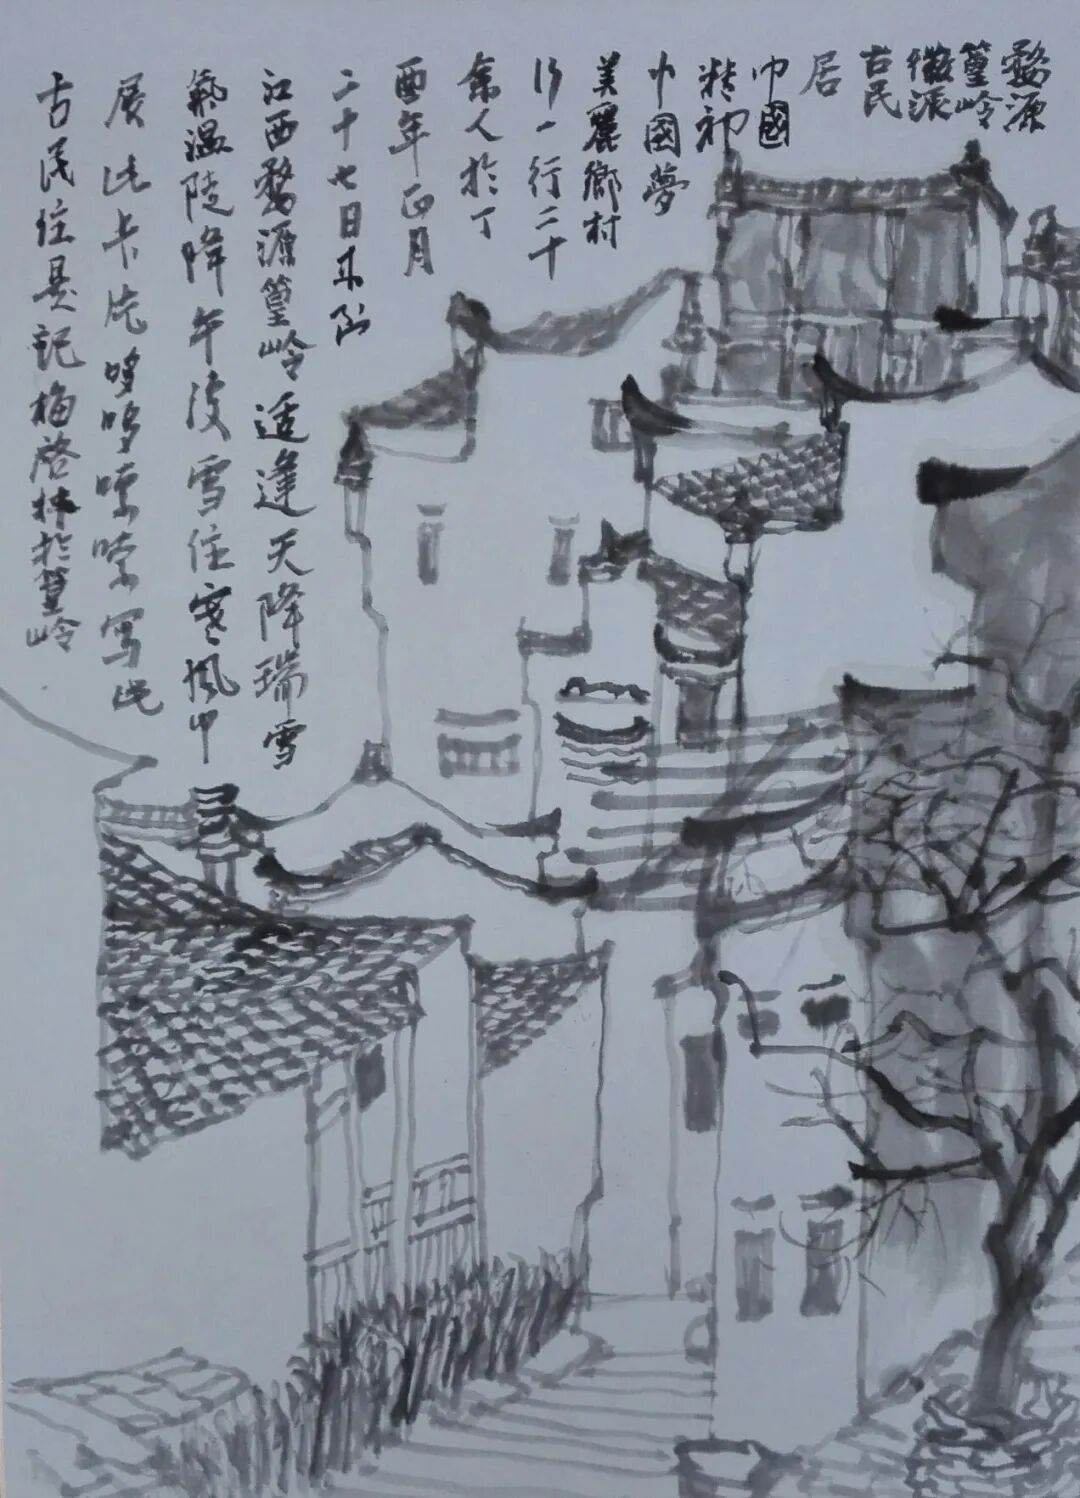 婺源
篁岭
徽派
古民
居
中國
精神
中國夢
美麗鄉村
行一行二十
余人於丁
酉年正月
二十七日来到
江西婺源篁岭适逢天降瑞雪
氣温陡降午後雪住寒风中
展此卡片哆哆嗦嗦写此
古民住是記梅啓林於篁岭